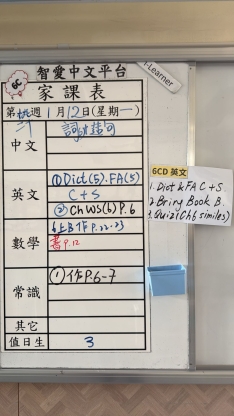 6C
智愛中文平台
i-Learner
家課表
第 週 1月12日(星期一)
中文
英文
①Dict(5). FA(5)
C+S
②Ch WS(6) P.6
數學
6上B作P.22-23
書P.12
常識
①作P.6-7
其它
值日生
3
6CD 英文
1. Dict & FA C+S.
2. Bring Book B.
3. Quiz1 (Ch6 similes)